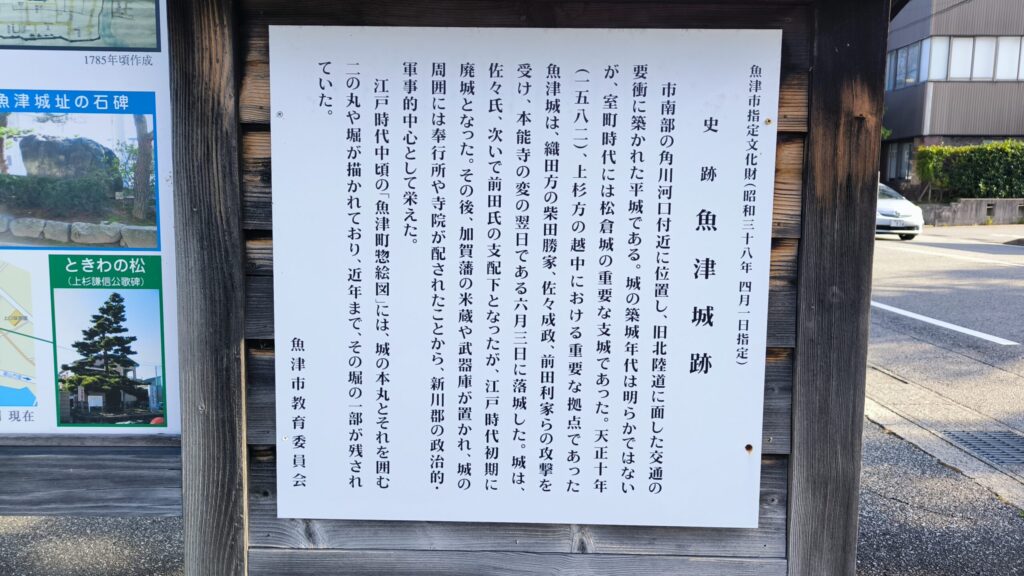 魚津市指定文化財(昭和三十八年 四月一日指定)
史跡 魚津城跡
市南部の角川河口付近に位置し、旧北陸道に面した交通の
要衝に築かれた平城である。城の築城年代は明らかではない
が、室町時代には松倉城の重要な支城であった。天正十年
(一五八二)、上杉方の越中における重要な拠点であった
魚津城は、織田方の柴田勝家、佐々成政、前田利家らの攻撃を
受け、本能寺の変の翌日である六月三日に落城した。城は、
佐々氏、次いで前田氏の支配下となったが、江戸時代初期に
廃城となった。その後、加賀藩の米蔵や武器庫が置かれ、城の
周囲には奉行所や寺院が配されたことから、新川郡の政治的・
軍事的中心として栄えた。
江戸時代中頃の「魚津町惣絵図」には、城の本丸とそれを囲む
二の丸や堀が描かれており、近年まで、その堀の一部が残され
ていた。
魚津市教育委員会
1785年頃作成
魚津城址の石碑
ときわの松
(上杉謙信公歌碑)
現在